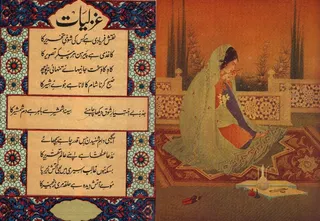 غزلیات
نقش فریادی ہے کس کی شوخی تحریر کا
کاغذی ہے پیرہن ہر پیکر تصویر کا
کاو کاو سخت جانیہائے تنہائی نہ پوچھ
صبح کرنا شام کا لانا ہے جوئے شیر کا
جذبہ بے اختیار شوق دیکھا چاہئے سینہ شمشیر سے باہر ہے دم شمشیر کا
آگہی دام شنیدن جس قدر چاہے بچھائے
مدعا عنقا ہے اپنے عالم تقریر کا
بسکہ ہوں غالب اسیری میں بھی آتش زیر پا
موئے آتش دیدہ ہے حلقہ مری زنجیر کا